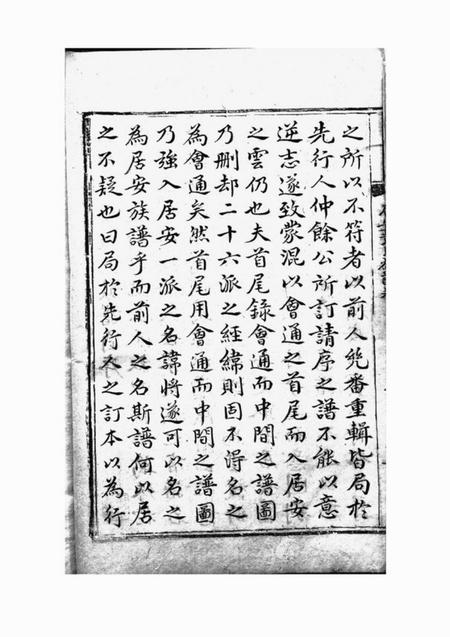 之所以不符者以前人幾番重輯皆局於
先行人仲餘公所訂請序之譜不能以意
逆志遂致蒙混以會通之首尾而入居安
之雲仍也夫首尾錄會通而中間之譜圖
乃删却二十六派之經緯則固不得名之
為會通矣然首尾用會通而中間之譜圖
乃強入居安一派之名諱將遂可以名之
為居安族譜乎而前人之名斯譜何以居
之不疑也曰局於先行人之訂本以為行